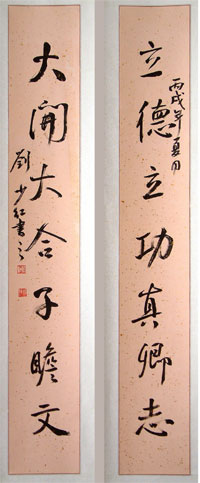 立德立功真卿志
丙戌年夏月
大開大合子瞻文
劉少紅書之